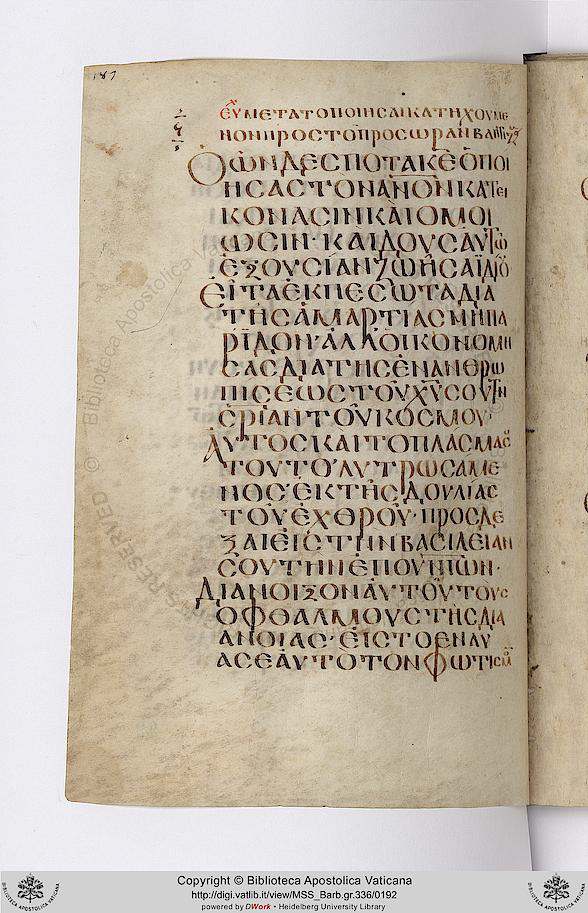 187
ΕΥ ΜΕΤΑ ΤΟ ΠΟΙΗΣΑΙ ΚΑΤΗΧΟΥΜΕ
ΝΟΝ ΠΡΟΣ ΤΟ ΠΡΟΣ ΩΡΑΝ
Ὁ ὬΝ ΔΕΣΠΟΤΑ ΚΕ Ὁ ΠΟΙ
ΗΣΑΣ ΤΟΝ ΑΝΟΝ ΚΑΤ ΕΙ
ΚΟΝΑ ΣΗΝ ΚΑΙ ΟΜΟΙ
ΩΣΙΝ· ΚΑΙ ΔΟΥΣ ΑΥΤΩ
ΕΞΟΥΣΙΑΝ ΖΩΗΣ ΑΪΔΙΟΥ
ΕΙΤΑ ΕΚΠΕΣΩΤΑ ΔΙΑ
ΤΗΣ ΑΜΑΡΤΙΑΣ ΜΗ ΠΑ
ΡΙΔΩΝ· ΑΛΛ ΟΙΚΟΝΟΜΗ
ΣΑΣ ΔΙΑ ΤΗΣ ΕΝΑΝΘΡΩ
ΠΗΣΕΩΣ ΤΟΥ ΧΥ ΣΟΥ ΤΗΝ
ΣΡΙΑΝ ΤΟΥ ΚΟΣΜΟΥ·
ΑΥΤΟΣ ΚΑΙ ΤΟ ΠΛΑΣΜΑ ΣΟΥ
ΤΟΥΤΟ ΛΥΤΡΩΣΑΜΕ
ΝΟΣ ΕΚ ΤΗΣ ΔΟΥΛΙΑΣ
ΤΟΥ ΕΧΘΡΟΥ· ΠΡΟΣΔΕ
ΞΑΙ ΕΙΣ ΤΗΝ ΒΑΣΙΛΕΙΑΝ
ΣΟΥ ΤΗΝ ΕΠΟΥΝΙΟΝ·
ΔΙΑΝΟΙΞΟΝ ΑΥΤΟΥ ΤΟΥΣ
ΟΦΘΑΛΜΟΥΣ ΤΗΣ ΔΙΑ
ΑΝΟΙΑΣ· ΕΙΣ ΤΟ ΕΝΑΥ
ΑΣΕ ΑΥΤΟ ΤΟΝ ΦΩΤΙΣΜΟ
© Biblioteca Apostolica Vaticana
RESERVED
Copyright © Biblioteca Apostolica Vaticana
http://digi.vatlib.it/view/MSS_Barb.gr.336/0192
powered by DWork • Heidelberg University Library